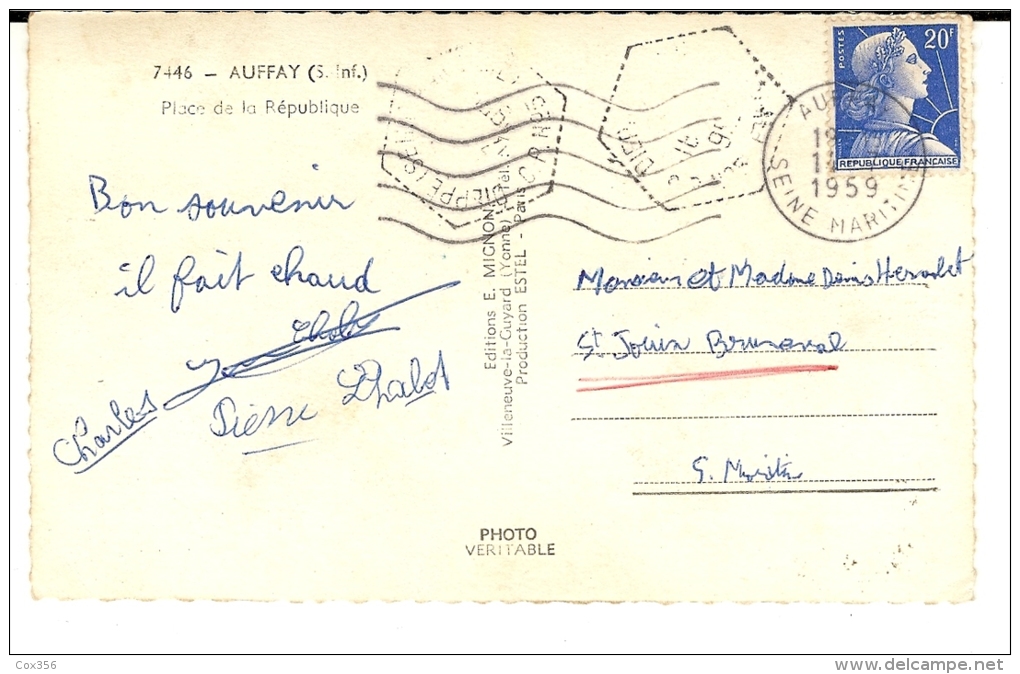 7446 - AUFFAY (S. Inf.)
Place de la République
Bon souvenir
il fait chaud
Charles
Pierre Lhabot
Editions E. MIGNON
Villeneuve-la-Guyard (Yonne)
Production ESTEL - Paris
PHOTO
VERITABLE
POSTES
20F
REPUBLIQUE FRANÇAISE
1959
SEINE MARITIME
DIEPPE
Monsieur et Madame Denis
St Jouin Bruneval
S. Mritime
Cox356
delcampe.net